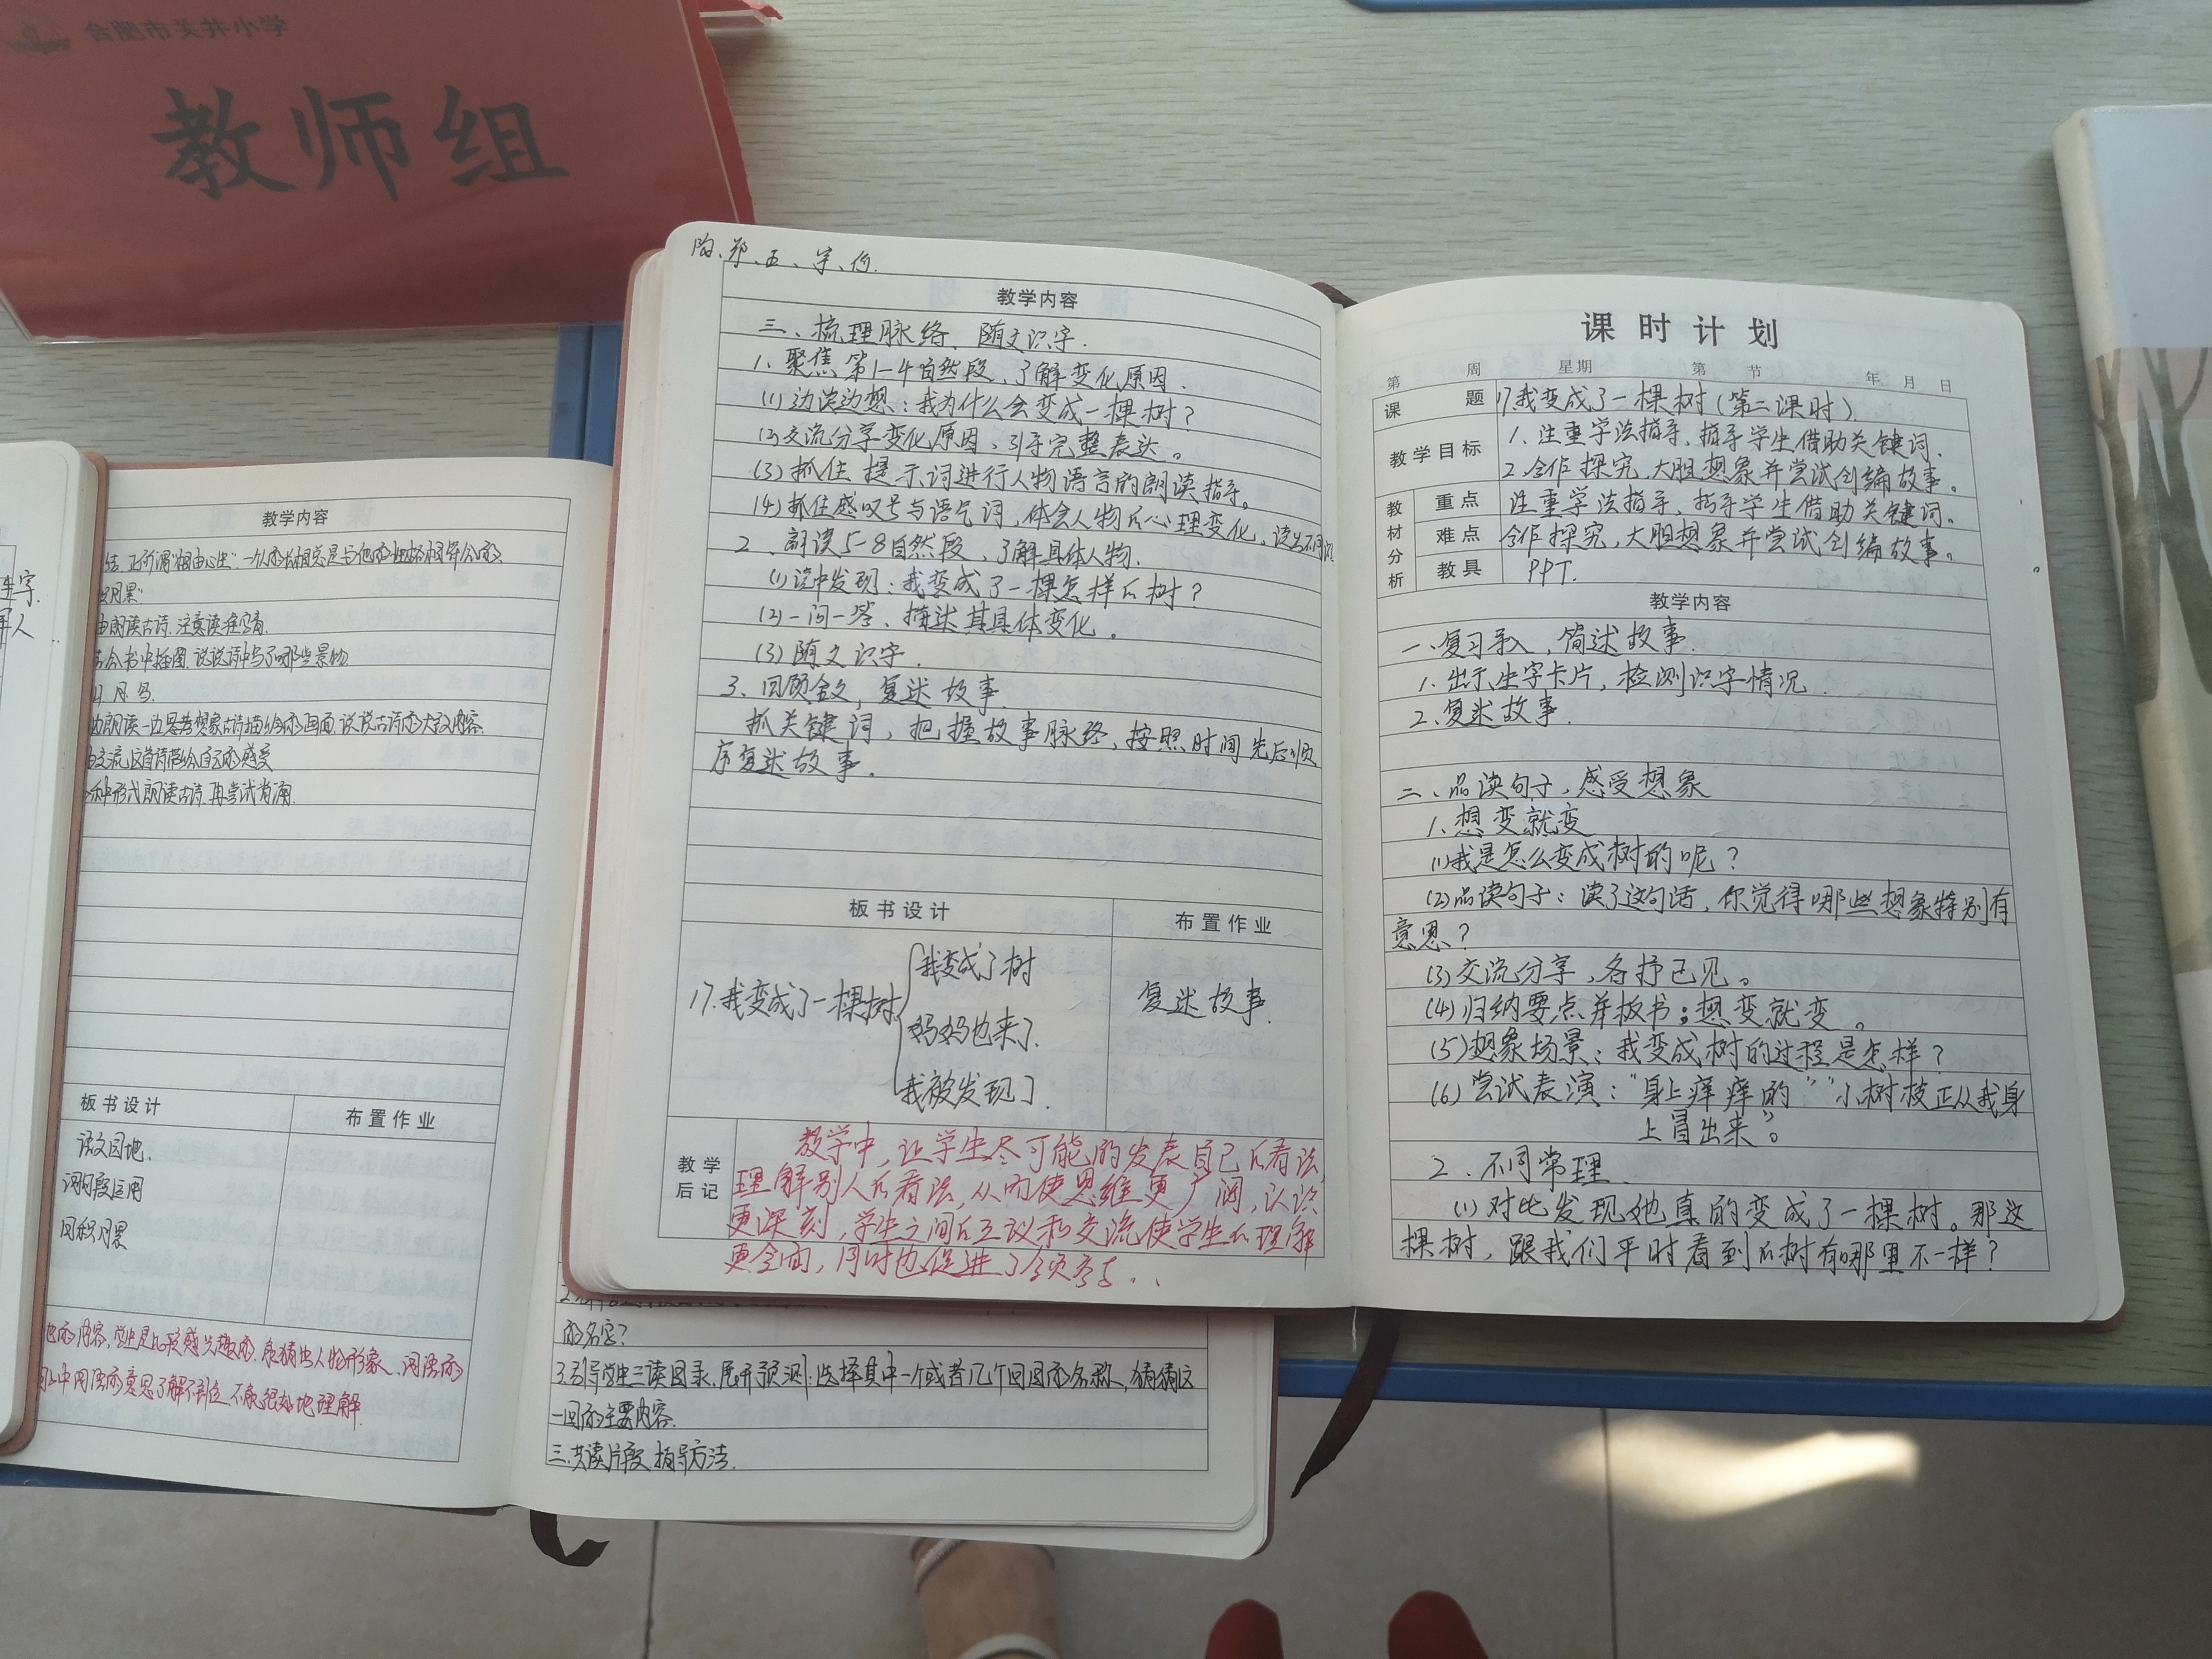 教师组
教学内容
三、梳理脉络、随文识字.
1、聚焦第1-4自然段、了解变化原因.
(1)边读边想:我为什么会变成一棵树?
(2)交流分享变化原因,引导完整表达。
(3)抓住提示词进行人物语言的朗读指导。
(4)抓住感叹号与语气词,体会人物的心理变化,读出不同
2、研读5-8自然段,了解具体人物.
(1)读中发现:我变成了一棵怎样的树?
(2)一问一答、描述其具体变化。
(3)随文识字.
3、回顾全文,复述故事.
抓关键词,把握故事脉络,按照时间先后顺
序复述故事.
板书设计
布置作业
17.我变成了一棵树
我变成了树
妈妈也来了.
我被发现了.
复述故事.
教学后记
教学中,让学生尽可能的发表自己的看法,
理解别人的看法,从而使思维更广阔,认识
更深刻,学生之间的互议和交流使学生的理解
更全面,同时也促进了
课时计划
第 周 星期 第 节 年 月 日
课题 17.我变成了一棵树(第二课时).
教学目标 1、注重学法指导,指导学生借助关键词.
2.合作探究,大胆想象并尝试创编故事。
教材分析
重点 注重学法指导,指导学生借助关键词。
难点 合作探究,大胆想象并尝试创编故事。
教具 PPT.
教学内容
一、复习导入,简述故事.
1.出示生字卡片,检测识字情况.
2.复述故事.
二、品读句子,感受想象
1.想变就变
(1)我是怎么变成树的呢?
(2)品读句子:读了这句话,你觉得哪些想象特别有
意思?
(3)交流分享,各抒己见。
(4)归纳要点并板书:想变就变。
(5)想象场景:我变成树的过程是怎样?
(6)尝试表演:“身上痒痒的”“小树枝正从我身
上冒出来”。
2.不同常理.
(1)对比发现她真的变成了一棵树。那这
棵树,跟我们平时看到的树有哪里不一样?
教学内容
由朗读古诗,注意读准字音.
结合书中插图,说说诗中写了哪些景物.
板书设计
布置作业
语文园地.
词句段运用
日积月累
的名字?
3.引导学生三读目录,展开预测:选择其中一个或者几个回目的名称,猜猜这
一回的主要内容.
三.共读片段,指导方法.